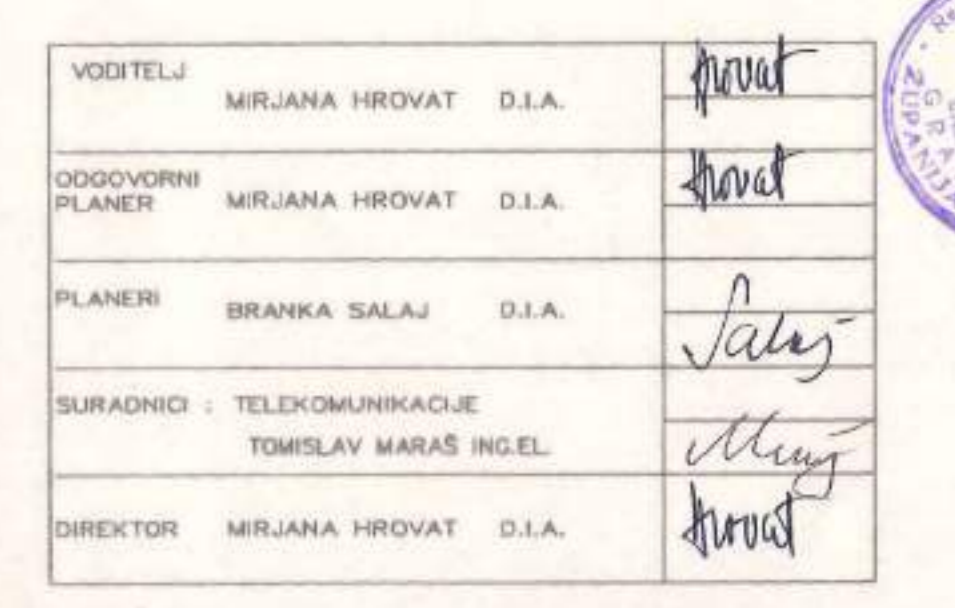 VODITELJ
MIRJANA HROVAT D.I.A. Hrovat
ODGOVORNI
PLANER MIRJANA HROVAT D.I.A. Hrovat
PLANERI
BRANKA SALAJ D.I.A. Salaj
SURADNICI : TELEKOMUNIKACIJE
TOMISLAV MARAŠ ING.EL.
DIREKTOR MIRJANA HROVAT D.I.A. Hrovat
ŽUPANIJA